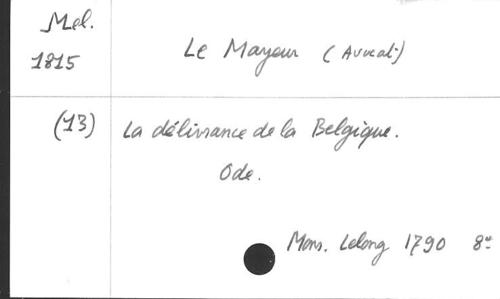 Mel.
1815
Le Mayeur (Avocat)
(13)
La délivrance de la Belgique.
Ode.
Mons. Lelong 1790 8º